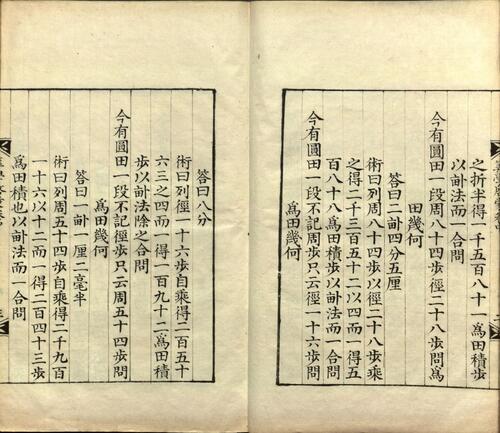 之折半得一千五百八十一爲田積步
以畝法而一合問
今有圓田一段周八十四步徑二十八步問爲
田幾何
答曰二畝四分五厘
術曰列周八十四步以徑二十八步乘
之得二千三百五十二以四而一得五
百八十八爲田積步以畝法而一合問
今有圓田一段不記周步只云徑一十六步問
爲田幾何
答曰八分
術曰列徑一十六步自乘得二百五十
六三之四而一得一百九十二爲田積
步以畝法除之合問
今有圓田一段不記徑步只云周五十四步問
爲田幾何
答曰一畝一厘二毫半
術曰列周五十四步自乘得二千九百
一十六以十二而一得二百四十三步
爲田積也以畝法而一合問